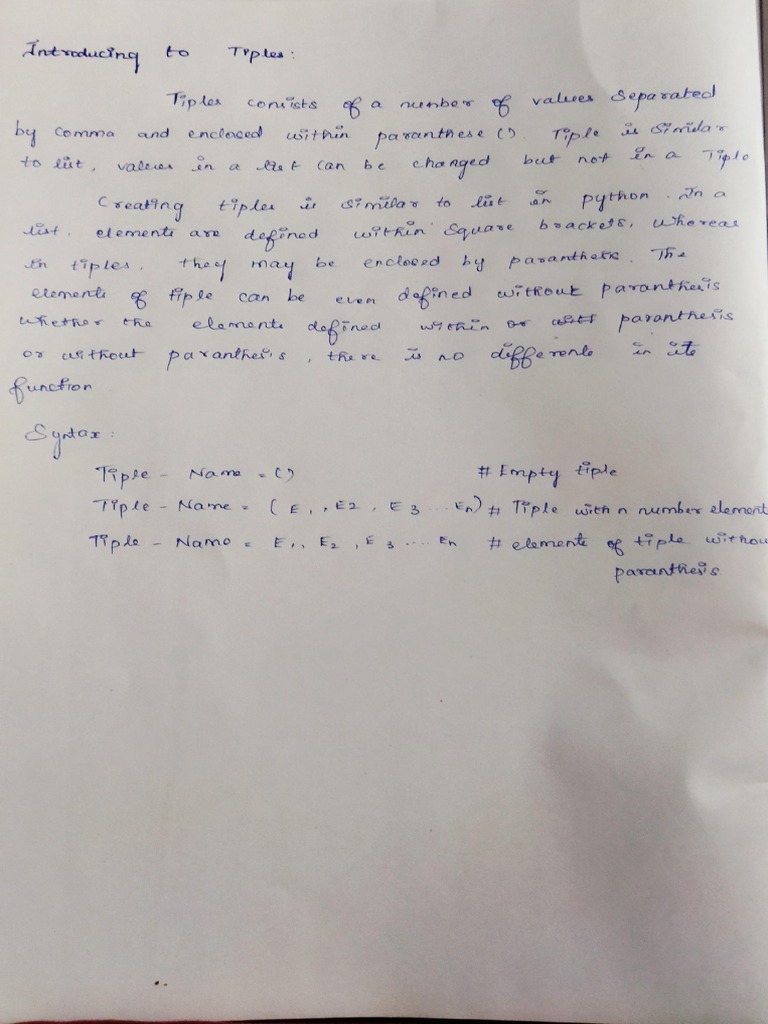 Introducing to Tiples:
Tiples consists of a number of values separated
by comma and enclosed within paranthese (). Tiple is similar
to list, values in a list can be changed but not in a Tiple
Creating tiples is similar to list in python. In a
list, elements are defined within square brackets, whereas
in tiples, they may be enclosed by paranthesis. The
elements of tiple can be even defined without paranthesis
whether the elements defined within or with paranthesis
or without paranthesis, there is no difference in its
function
Syntax:
Tiple - Name = () # Empty tiple
Tiple - Name = (E1, E2, E3 ... En) # Tiple with n number element
Tiple - Name = E1, E2, E3 .... En # elements of tiple withou
paranthesis